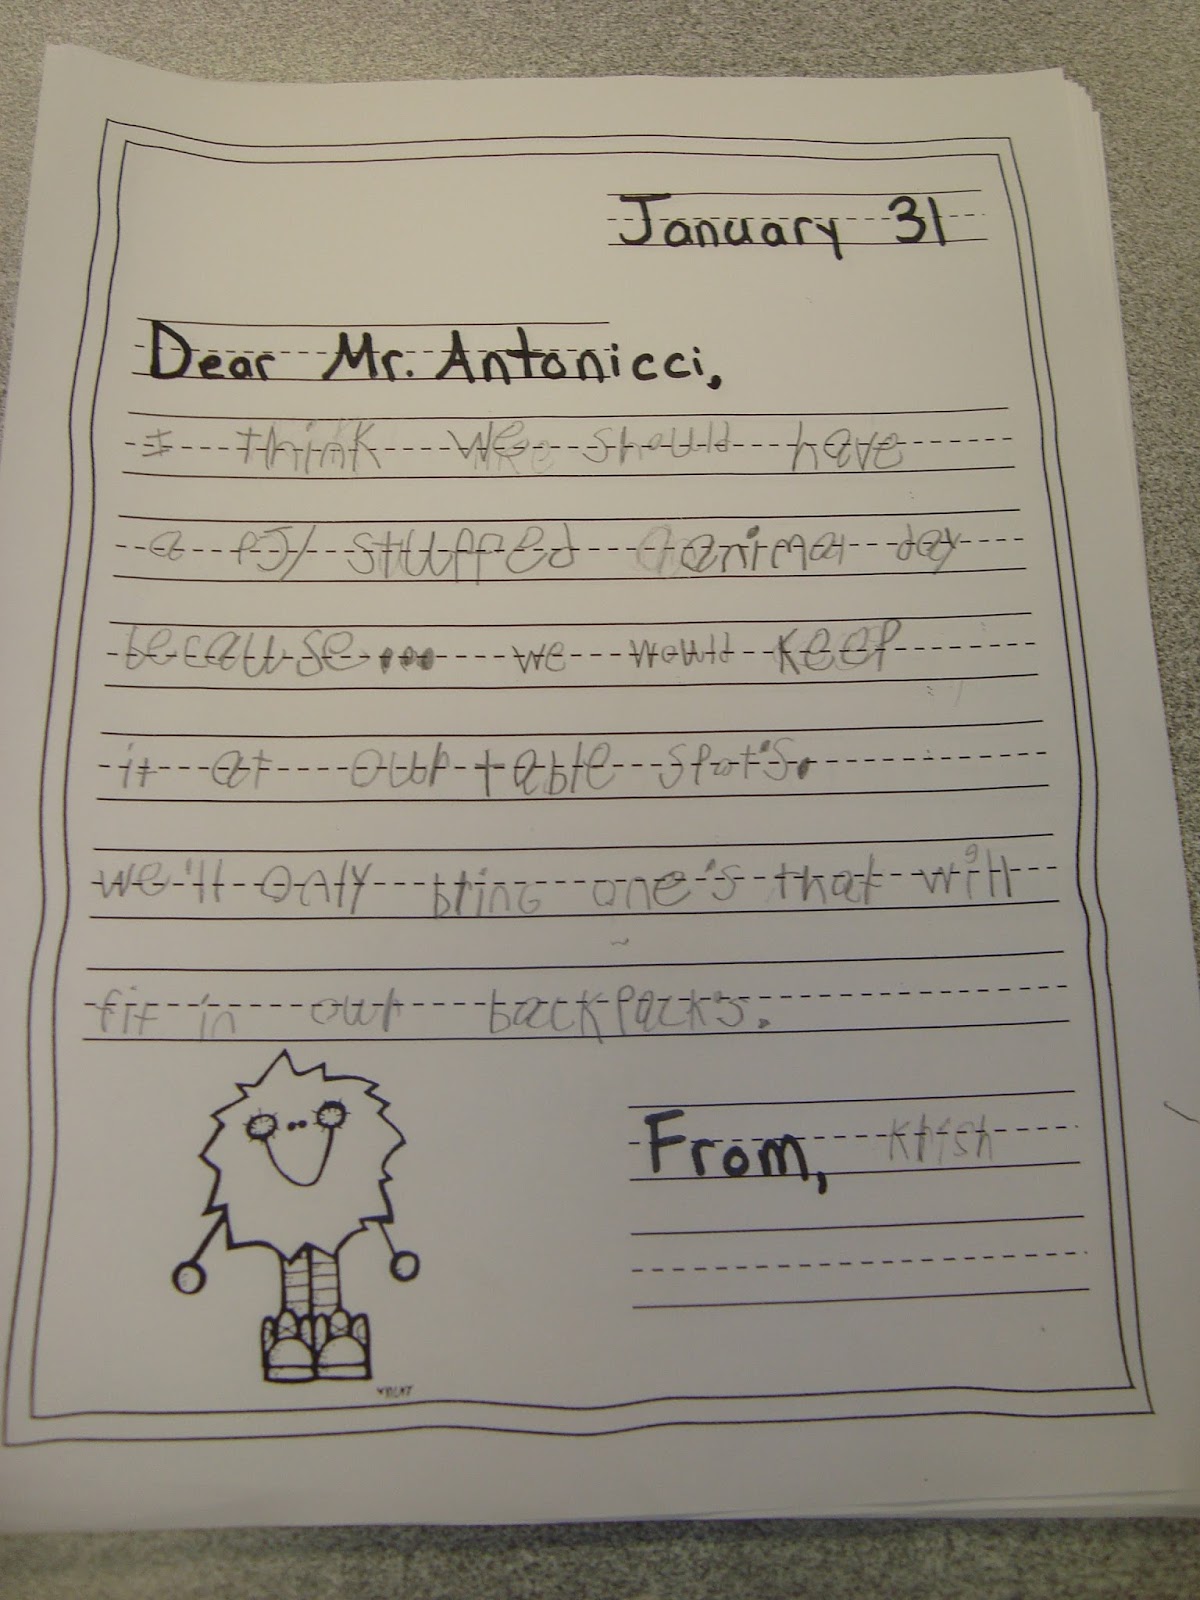 January 31
Dear Mr. Antonicci,
I think we should have
a PJ/ stuffed animal day
because... we would keep
it at our table spot's.
we'll only bring one's that will
fit in our backpack's.
From, Krish